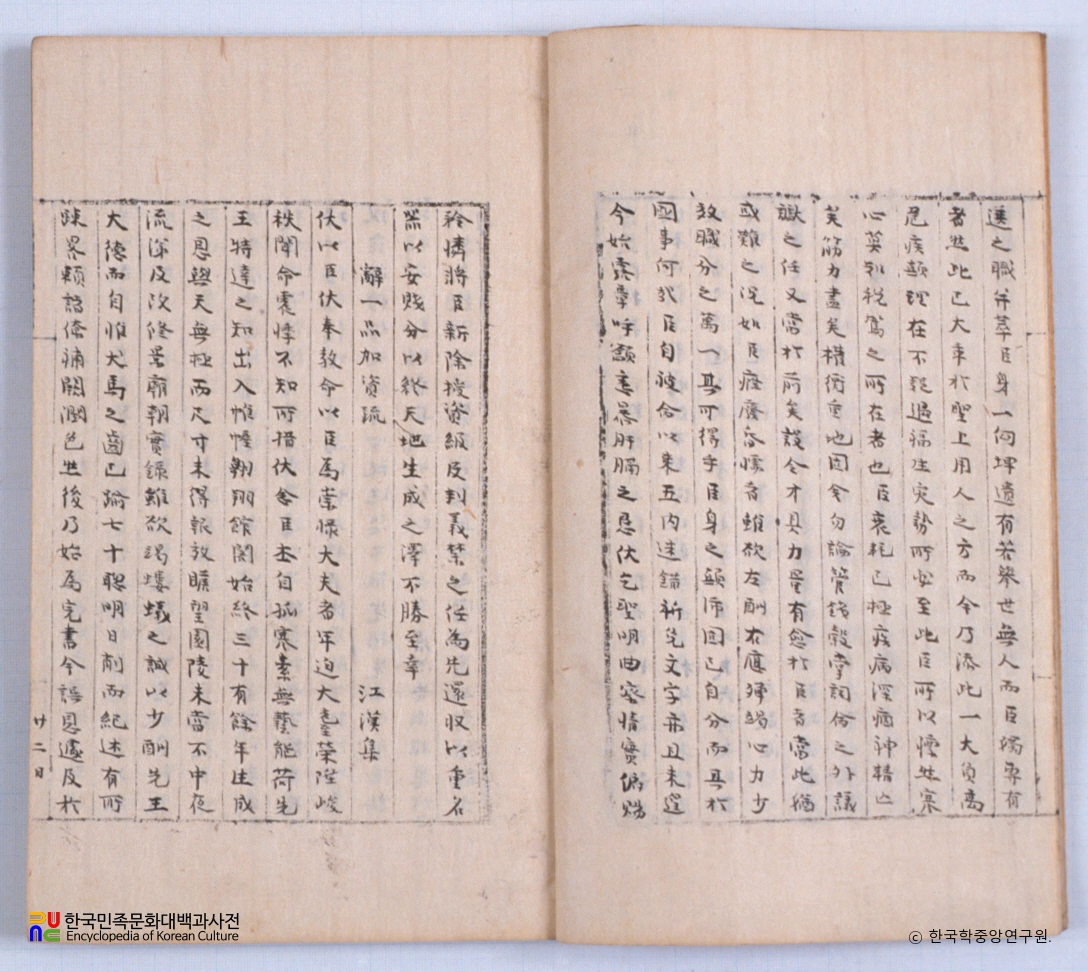 進之職幷萃臣身一何埤遺有若擧世無人而臣獨專有
者然此已大幸於聖上用人之方而今乃添此一大負高
危疾顚理在不疑過福生灾勢所必至此臣所以懍然寒
心莫知稅駕之所在者也臣衰耗已極疾病深痼神精亡
矣筋力盡矣機衡重地固令勿論管鑰轂掌詞命之外議
讞之任又當於前矣設令才具力量有愈於臣者當此猶
或難之况如臣癃廢昏懦者雖欲左酬右應殫竭心力少
效職分之萬一其可得乎臣身之顚沛固已自分而其於
國事何哉臣自被命以來五內迷錯祈免文字亦且未遑
今始露章呼籲悉暴肝膈之懇伏乞聖明曲察情實偏賜
矜憐將臣新除授資級及判義禁之任爲先還收以重名
器以安賤分以終天地生成之澤不勝至幸
辭一品加資疏 江漢集
伏以臣伏奉敎命以臣爲崇祿大夫者年迫大耋榮陞峻
秩聞命震悸不知所措伏念臣本自孤寒素無藝能荷先
王特達之知出入帷幄翱翔館閣始終三十有餘年生成
之恩與天無極而尺寸未得報效瞻望園陵未嘗不中夜
流涕及改修景廟朝實錄雖欲竭螻蟻之誠以少酬先王
大德而自惟犬馬之齒已踰七十聰明日削而紀述有所
踈略顆諸僚補闕潤色然後乃始爲完書今誤恩遽及於
廿二日
한국민족문화대백과사전
Encyclopedia of Korean Culture
ⓒ 한국학중앙연구원.